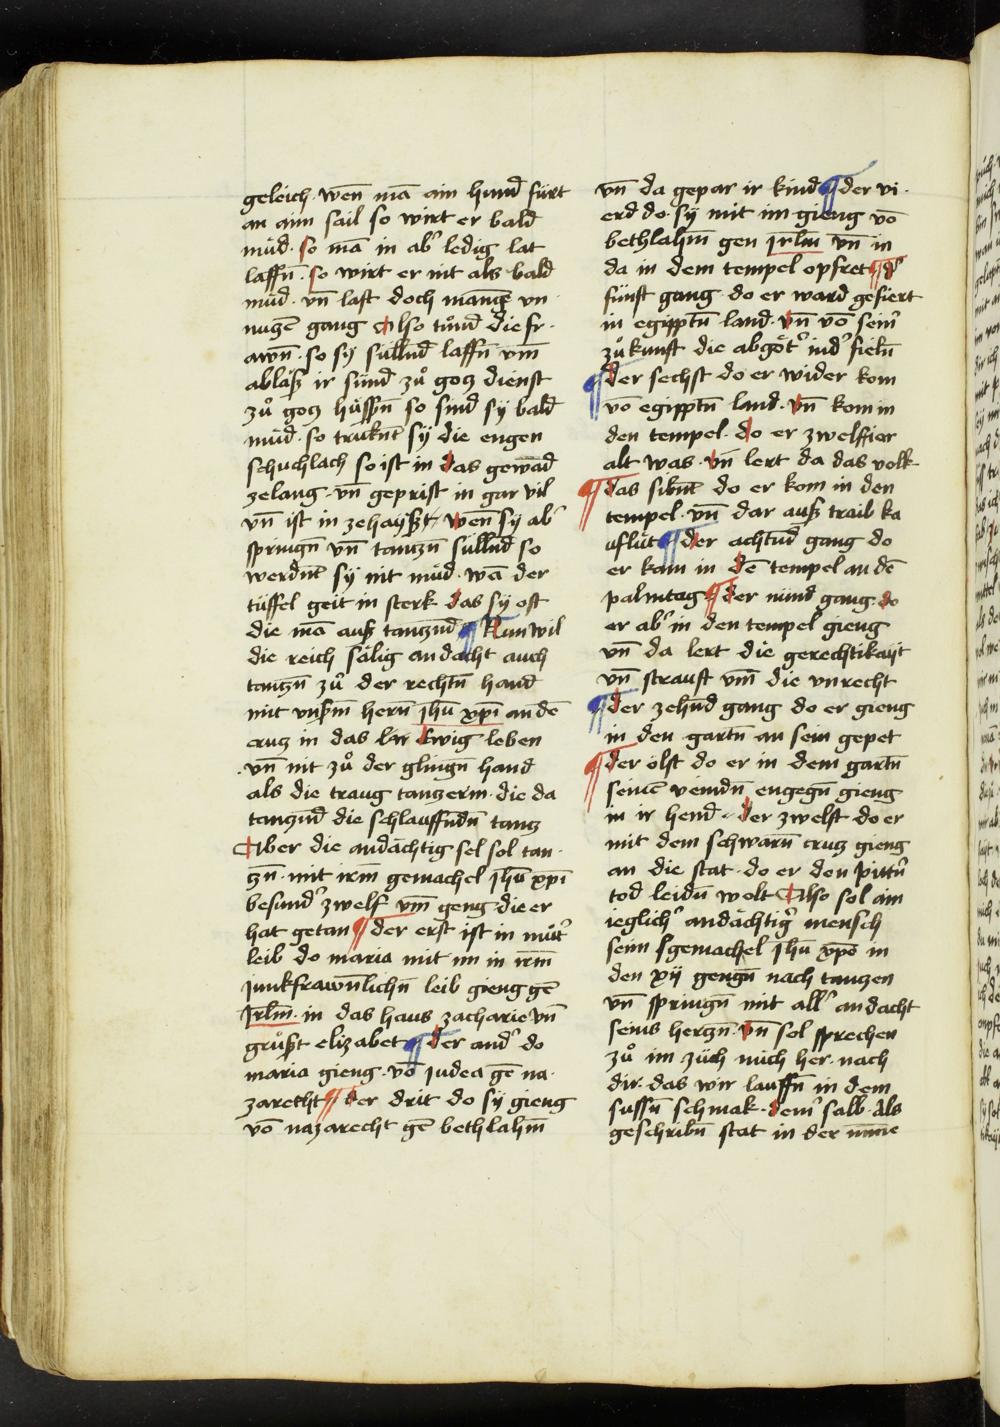 geleich · wen̄ mā ain hund fürt
an aim sail so wirt er bald
müd · so mā in ab͛ ledig lat
lauffn̄ · so wirt er nit als bald
müd · vn̄ last doch mange vn
nuczē gang Also tůnd die fr·
awn̄ · so sy süllnd lauffn̄ vm̄
ablaß ir sünd zů gocz dienst
zů gocz hüssern so sind sy bald
müd · so truknt̄ sy die engen
schuchlach so ist in das gewād
zelang · vn̄ geprist in gar vil
vn̄ ist in zehayß · wen̄ sy ab͛
springn̄ vn̄ tanczn̄ süllnd so
werdnt̄ sy nit müd · wā der
tüffel geit in sterk das sy oft
die mā auß tanczn̄d ¶ Nun wil
die reich sälig andacht auch
tanczn̄ zů der rechtn̄ hand
mit vnßm̄ hern̄ jhū xp̄i an dē
crucz in das ewig leben
· vn̄ nit zů der glingn̄ hand
als die traug tanczerin · die da
tanczn̄d die schlauffndn̄ tancz
Aber die andächtig sel sol tan·
czn̄ · mit irm̄ gemachel jhū xp̄i
besund͛ zwelf vm̄ geng · die er
hat getan ¶ der erst ist in můt͛
leib do maria mit im in irm̄
junkfrawn̄lichn̄ leib gieng gē
jrlm̄ · in das haus zacharie vn̄
grůßt elizabet ¶ Der and͛ do
maria gieng · vō judea gē na·
zarecht ¶ der drit do sy gieng
vō nazarecht gē bethlahm̄
vn̄ da gepar ir kind ¶ der vi·
erd do · sy mit im gieng vō
bethlahm̄ gen jrlm̄ vn̄ in
da in dem tempel opfret ¶ d͛
fünft gang · do er ward gefiert
in egipptn̄ land · vn̄ vō seim͛
zůkunft die abgöt͛ nid͛ fieln̄
¶ der sechst do er wider kom
vō egipptn̄ land · vn̄ kom in
den tempel · do er zwelffier
alt was · vn̄ lert da das volk ·
¶ das sibnt̄ do er kom in den
tempel · vn̄ dar auß traib ka
ufliut ¶ der achtud gang do
er kam in dē tempel an dē
palmtag ¶ der nünd gang do
er ab͛ in den tempel gieng
vn̄ da lert die gerechtikayt
vn̄ strauft vm̄ die vnrecht
¶ der zehn̄d gang do er gieng
in den gartn̄ an sein gepet
¶ der ölft do er in dem gartn̄
seinē veindn̄ engegn̄ gieng
in ir hend · der zwelft do er
mit dem schwarn̄ crucz gieng
an die stat · do er den pittn̄
tod leidn̄ wolt Also sol ain
ieglich͛ andächtig͛ mensch
seim gemachel jhū xp̄o in
den xij gengn̄ nach tanczen
vn̄ springn̄ mit all͛ andacht
seins herczn̄ · vn̄ sol sprechen
zů im züch mich her · nach
dir · das wir lauffn̄ in dem
sussn̄ schmak · deinr͛ salb · Als
geschribn̄ stat in der